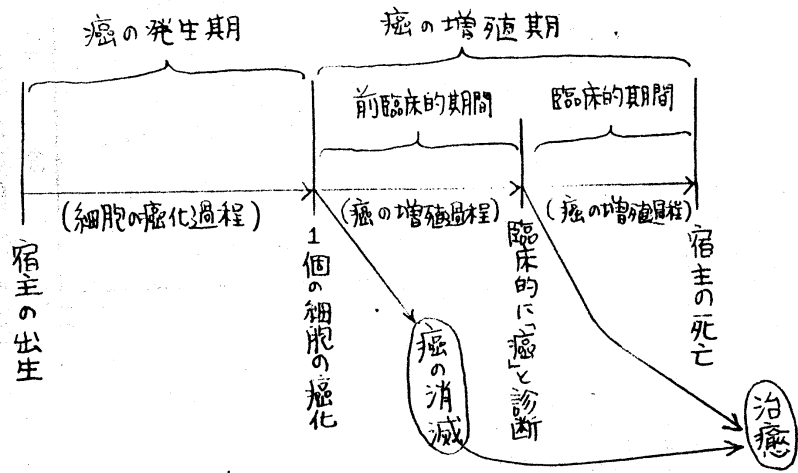 癌の発生期
癌の増殖期
前臨床的期間
臨床的期間
(細胞の癌化過程)
(癌の増殖過程)
(癌の増殖過程)
宿主の出生
1個の細胞の癌化
臨床的に「癌」と診断
宿主の死亡
癌の消滅
治癒